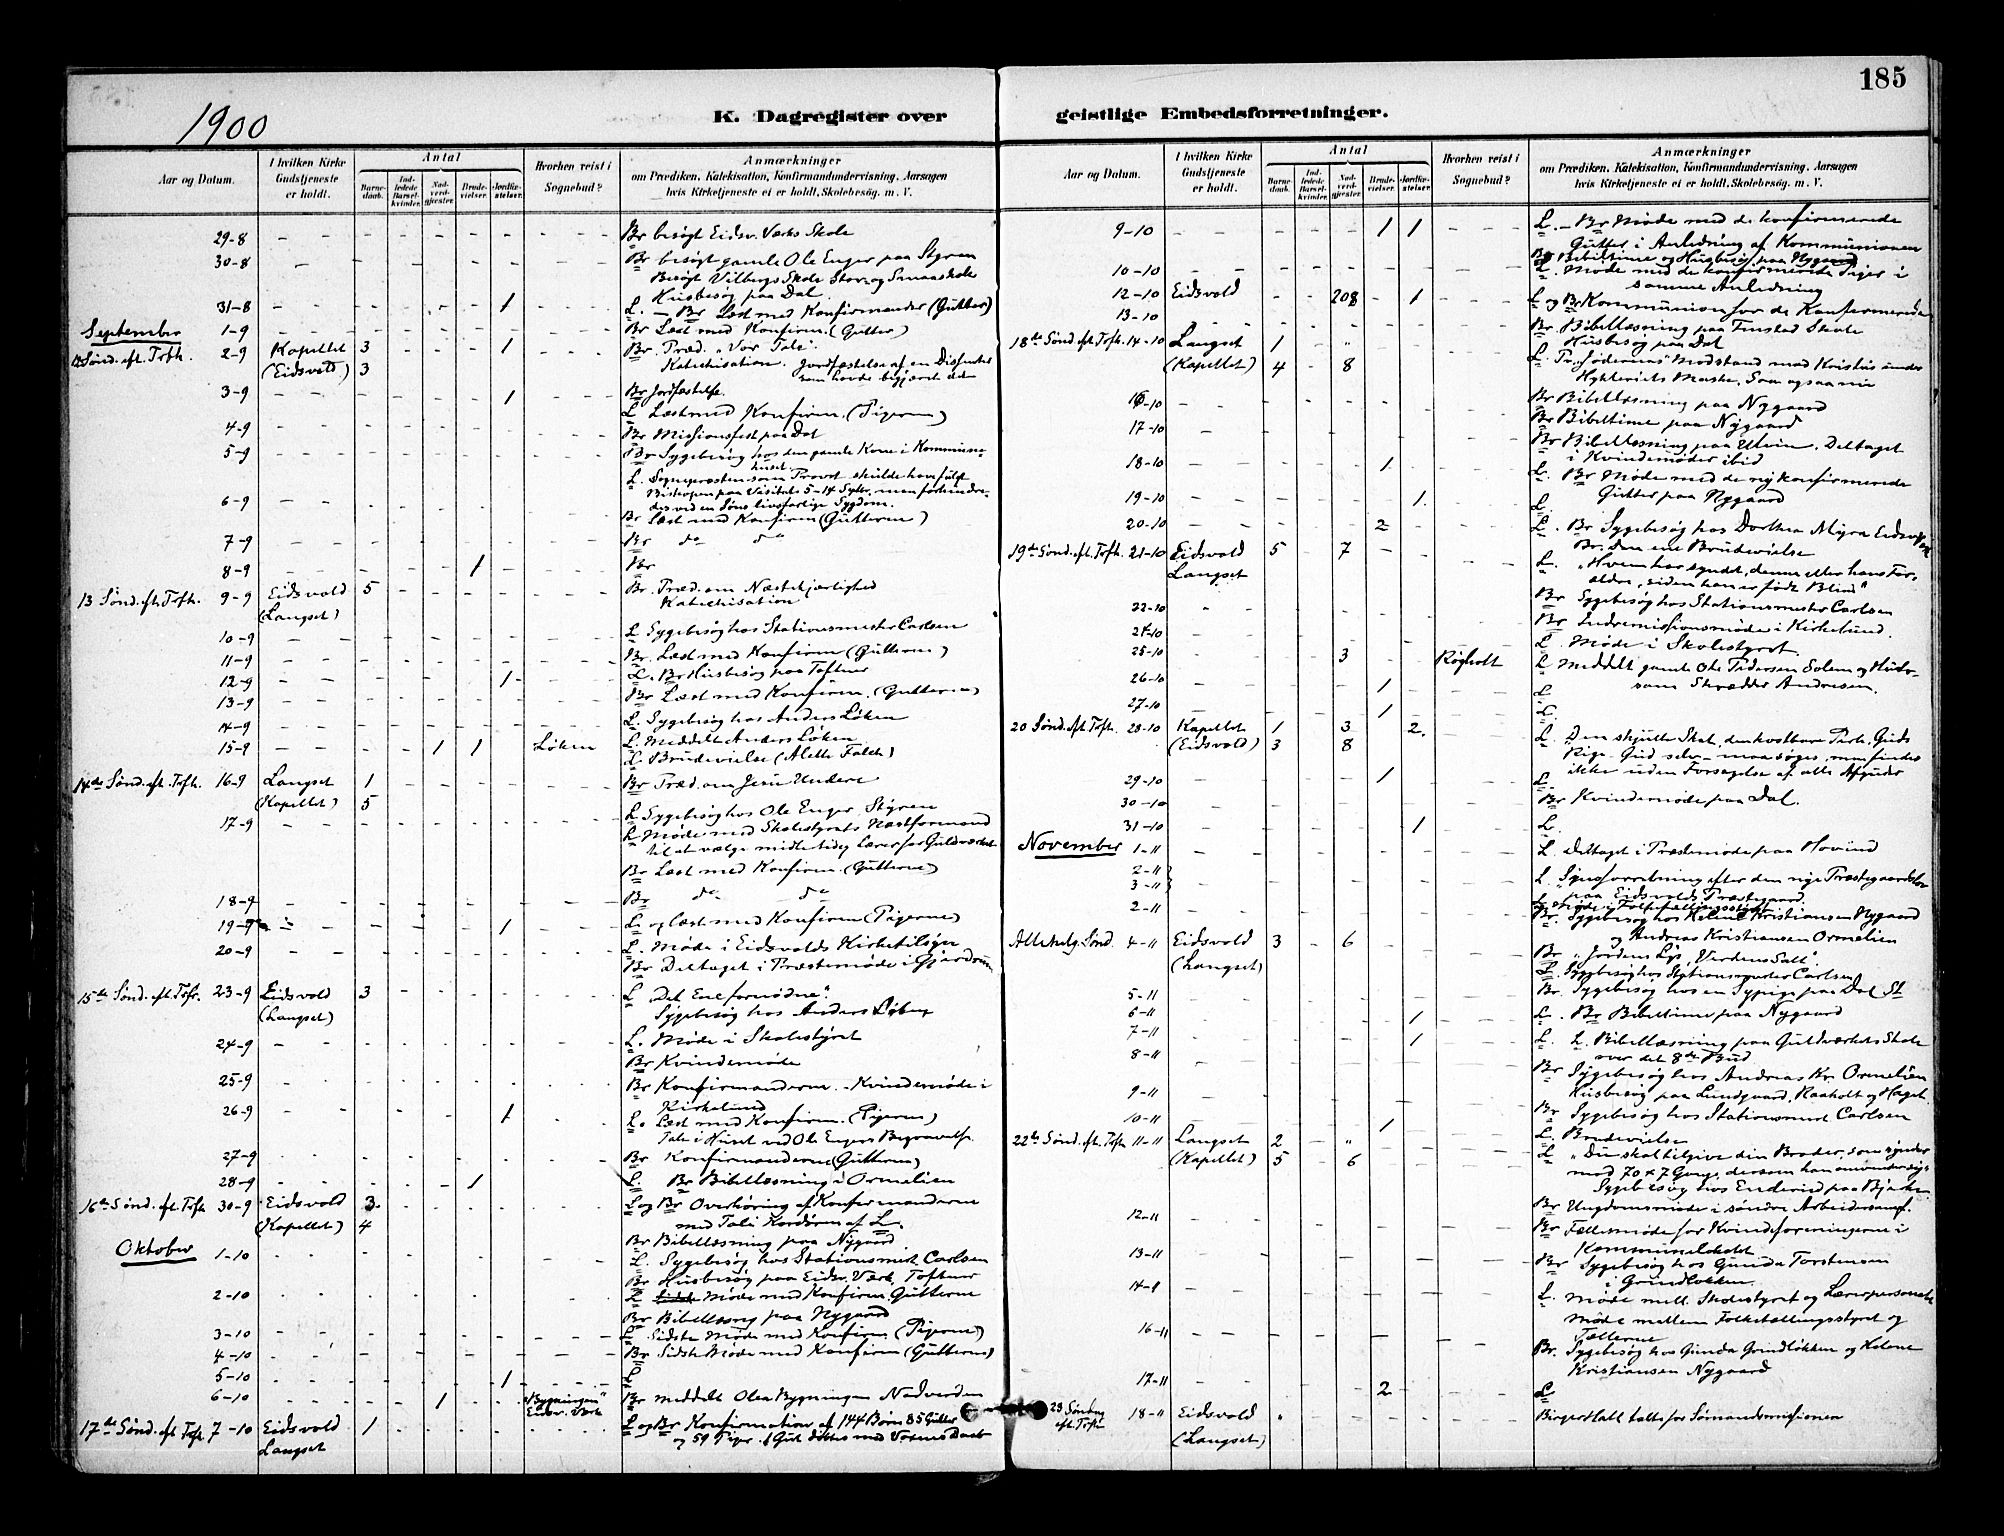 185
1900
K. Dagregister over geistlige Embedsforretninger.
Aar og Datum.
I hvilken Kirke Gudstjeneste er holdt.
Antal
Barnedaab.
Indledede Barselkvinder.
Nadverdgjester.
Brudevielser.
Jordfæstelser.
Hvorhen reist i Sognebud?
Anmærkninger om Prædiken, Katekisation, Konfirmandundervisning, Aarsagen hvis Kirketjeneste ei er holdt, Skolebesøg. m. V.
29-8 Br besøgt Eidsv. Værks Skole
30-8 Br besøgt gamle Ole Enger paa Styren
Besøgt Vilbergs Skole Stor og Smaaskole
Husbesøg paa Dal.
31-8 1 L. – Br Læst med Konfirmander (Gutter)
September 1-9 Br Læst med Konfirm. (Gutter)
12 Sønd. eft. Trfh. 2-9 Kapellet 3 1 Br. Præd. "Vor Tale".
(Eidsvold) 3 Katechisation. Jordfæstelse af en Dissenter
som havde begjæret det
3-9 1 Br Jordfæstelse.
L Læst med Konfirm. (Pigerne)
4-9 Br Missionsfest paa Dal
5-9 Br Sygebesøg hos den gamle Kone i Kommune-
huset.
L. Sognepræsten som Provst skulde have fulgt
Bishopen paa Visitats 5-14 Septbr, men forhindre-
6-9 des ved en Søns livsfarlige Sygdom.
Br Læst med Konfirm (Gutterne)
7-9 Br do do
8-9 1 Br
13 Sønd. eft. Trfh. 9-9 Eidsvold 5 Br. Præd. om Næstekjærlighed
(Langset) Katechisation
10-9 L Sygebesøg hos Stationsmester Carlsen
11-9 Br. Læst med Konfirm (Gutterne)
12-9 1 L. Br Husbesøg paa Toftner
13-9 Br Læst med Konfirm. (Gutterne)
14-9 L. Sygebesøg hos Anders Løken
15-9 1 1 Løken L. Meddelt Anders Løken
L. Brudevielse (Alette Falch)
14de Sønd. eft. Trfh. 16-9 Langset 1 Br Præd. om Jesu Undere
(Kapellet) 5
L Sygebesøg hos Ole Enger, Styren
17-9 L Møde med Skolestyrets Næstformand
til at vælge midlertidig Lærer for Guldværket
Br Læst med Konfirm. (Gutterne)
18-9 Br do do
19-9 1 L og læst med Konfirm (Pigerne)
20-9 L. Møde i Eidsvolds Kirketilsyn
Br Deltaget i Præstemøde i Gjerdrum
15de Sønd. eft. Trfr. 23-9 Eidsvold 3 L "Det Ene fornødne".
(Langset) Sygebesøg hos Anders Løken
24-9 L. Møde i Skolestyret
Br Kvindemøde
25-9 Br Konfirmanderne. – Kvindemøde i
Kirkelund
26-9 1 L. Læst med Konfirm. (Pigerne)
Tale i Huset ved Ole Engers Begravelse
27-9 Br Konfirmanderne (Gutterne)
28-9 1 L. Br Bibellæsning i Ormelien
16de Sønd. eft. Trfh 30-9 Eidsvold 3 L og Br Overhøring af Konfirmanderne
(Kapellet) 4 med Tale Kordøren af L.
Br Bibellæsning paa Nygaard
Oktober 1-10 L. Sygebesøg hos Stationsmest. Carlsen
Br Husbesøg paa Eidsv. Værk, Toftner
2-10 L Møde med Konfirm. Gutterne
Br Bibellæsng paa Nygaard
3-10 L Sidste Møde med Konfirm (Pigerne)
4-10 Br Sidste Møde med Konfirm (Gutterne)
5-10 1 L
6-10 1 "Bygningen" Eidsv. Værk Br meddelt Olea Bygningen Nadverden
17de Sønd. eft Trf. 7-10 Eidsvold 1 L og Br Konfirmation af 144 Børn 85 Gutter
Langset og 59 Piger.
Aar og Datum.
I hvilken Kirke Gudstjeneste er holdt.
Antal
Barnedaab.
Indledede Barselkvinder.
Nadverdgjester.
Brudevielser.
Jordfæstelser.
Hvorhen reist i Sognebud?
Anmærkninger om Prædiken, Katekisation, Konfirmandundervisning, Aarsagen hvis Kirketjeneste ei er holdt, Skolebesøg. m. V.
9-10 1 1 L. – Br Møde med de konfirmerede
Gutter i Anledning af Kommunionen
Br Bibeltime og Husbesøg paa Nygaard
10-10 L. Møde med de konfirmerede Piger i
samme Anledning
12-10 Eidsvold 208 1 L og Br Kommunion for de Konfirmerede
13-10 Br. Bibellæsning paa Finstad Skole
Husbesøg paa Dal
18de Sønd. eft. Trfh. 14-10 Langset 1 " L. Pr. "Jødernes Modstand mod Kristus under
(Kapellet) 4 8 Hykleriets Maske, Som ogsaa nu
16-10 Br Bibellæsning paa Nygaard
17-10 Br Bibeltime paa Nygaard
Br Bibellæsning paa Ulvin. Deltaget
18-10 1 i Kvindemøder ibid
L. Br Møde med de nykonfirmerede
Gutter paa Nygaard
19-10 1. L.
20-10 2 L. Br Sygebesøg hos Dorthea Myra Eidsv.
Br. den ene Brudevielse
19de Sønd. eft. Trfh. 21-10 Eidsvold 5 7 L. "Hvem har syndet, denne eller hans For-
Langset ældre, siden han er født Blind"
22-10 Br Sygebesøg hos Stationsmester Carlsen
Br Indremissionsmøde i Kirkelund.
24-10 L Møde i Skolestyret
25-10 3 Røgholt L Meddelt gamle Ole Pedersen Solem og Hustru
samt Skrædder Andresen.
26-10 1 L
27-10 1 L.
20 Sønd. eft Trfh. 28-10 Kapellet 1 3 2. L. "Den skjulte Skat, den kostbare Perle, Guds
(Eidsvold) 3 8 Rige – Gud selv – maa søges, men findes
ikke uden Forsagelse af alle Afguder
29-10 1 L.
30-10 Br Kvindemøde paa Dal.
31-10 1 L
November 1-11 L. deltaget i Præstemøde paa Hovind
2-11
3-11 L. Synsforretning efter den nye Præstegaardslov
paa Eidsvolds Præstegaard.
L Møde i Folketællingsstyret
2-11 Br. Sygebesøg hos Helene Kristiansen Nygaard
og Andreas Kristiansen Ormelien
Allehelg. Sønd. 4-11 Eidsvold 3 6 Br "Jordens Lys, Verdens Salt".
(Langset) L. Sygebesøg hos Stationsmester Carlsen
5-11 Br. Sygebesøg hos en Sypige paa Dal St
6-11 1 L. Br Bibeltime paa Nygaard
7-11 1 L. L. Bibellæsning paa Guldværkets Skole
over det 8de Bud
8-11 Br Sygebesøg hos Andreas Kr. Ormelien
Husbesøg paa Lundgaard, Raaholt og Haget
9-11 Br Sygebesøg hos Stationsmest Carlsen
10-11 1 L. Brudevielse
22de Sønd. eft. Trfh 11-11 Langset 2 " L "Du skal tilgive din Broder, som synder
(Kapellet) 5 6 mod 70 x 7 Gange, dersom han omvender sig"
Sygebesøg hos Enderud paa Bjerke
12-11 Br Ungdomsmøde i søndre Arbeidersamf.
Br Fællesmøde for Kvindeforeningerne i
13-11 Kommunelokalet
Br Sygebesøg hos Gunda Torstensen
14-11 i Grindløkken
L. Møde mell. Skolestyret og Lærerpersonalet
Møde mellem Folketællingsstyret og
Tællerne
16-11 Br. Sygebesøg hos Gunda Grindløkken og Helene
Kristiansen Nygaard
17-11 2 L
23 Søndag eft. Trfh 18-11 Eidsvold Birger Hall talte for Sømandsmissionen
(Langset)